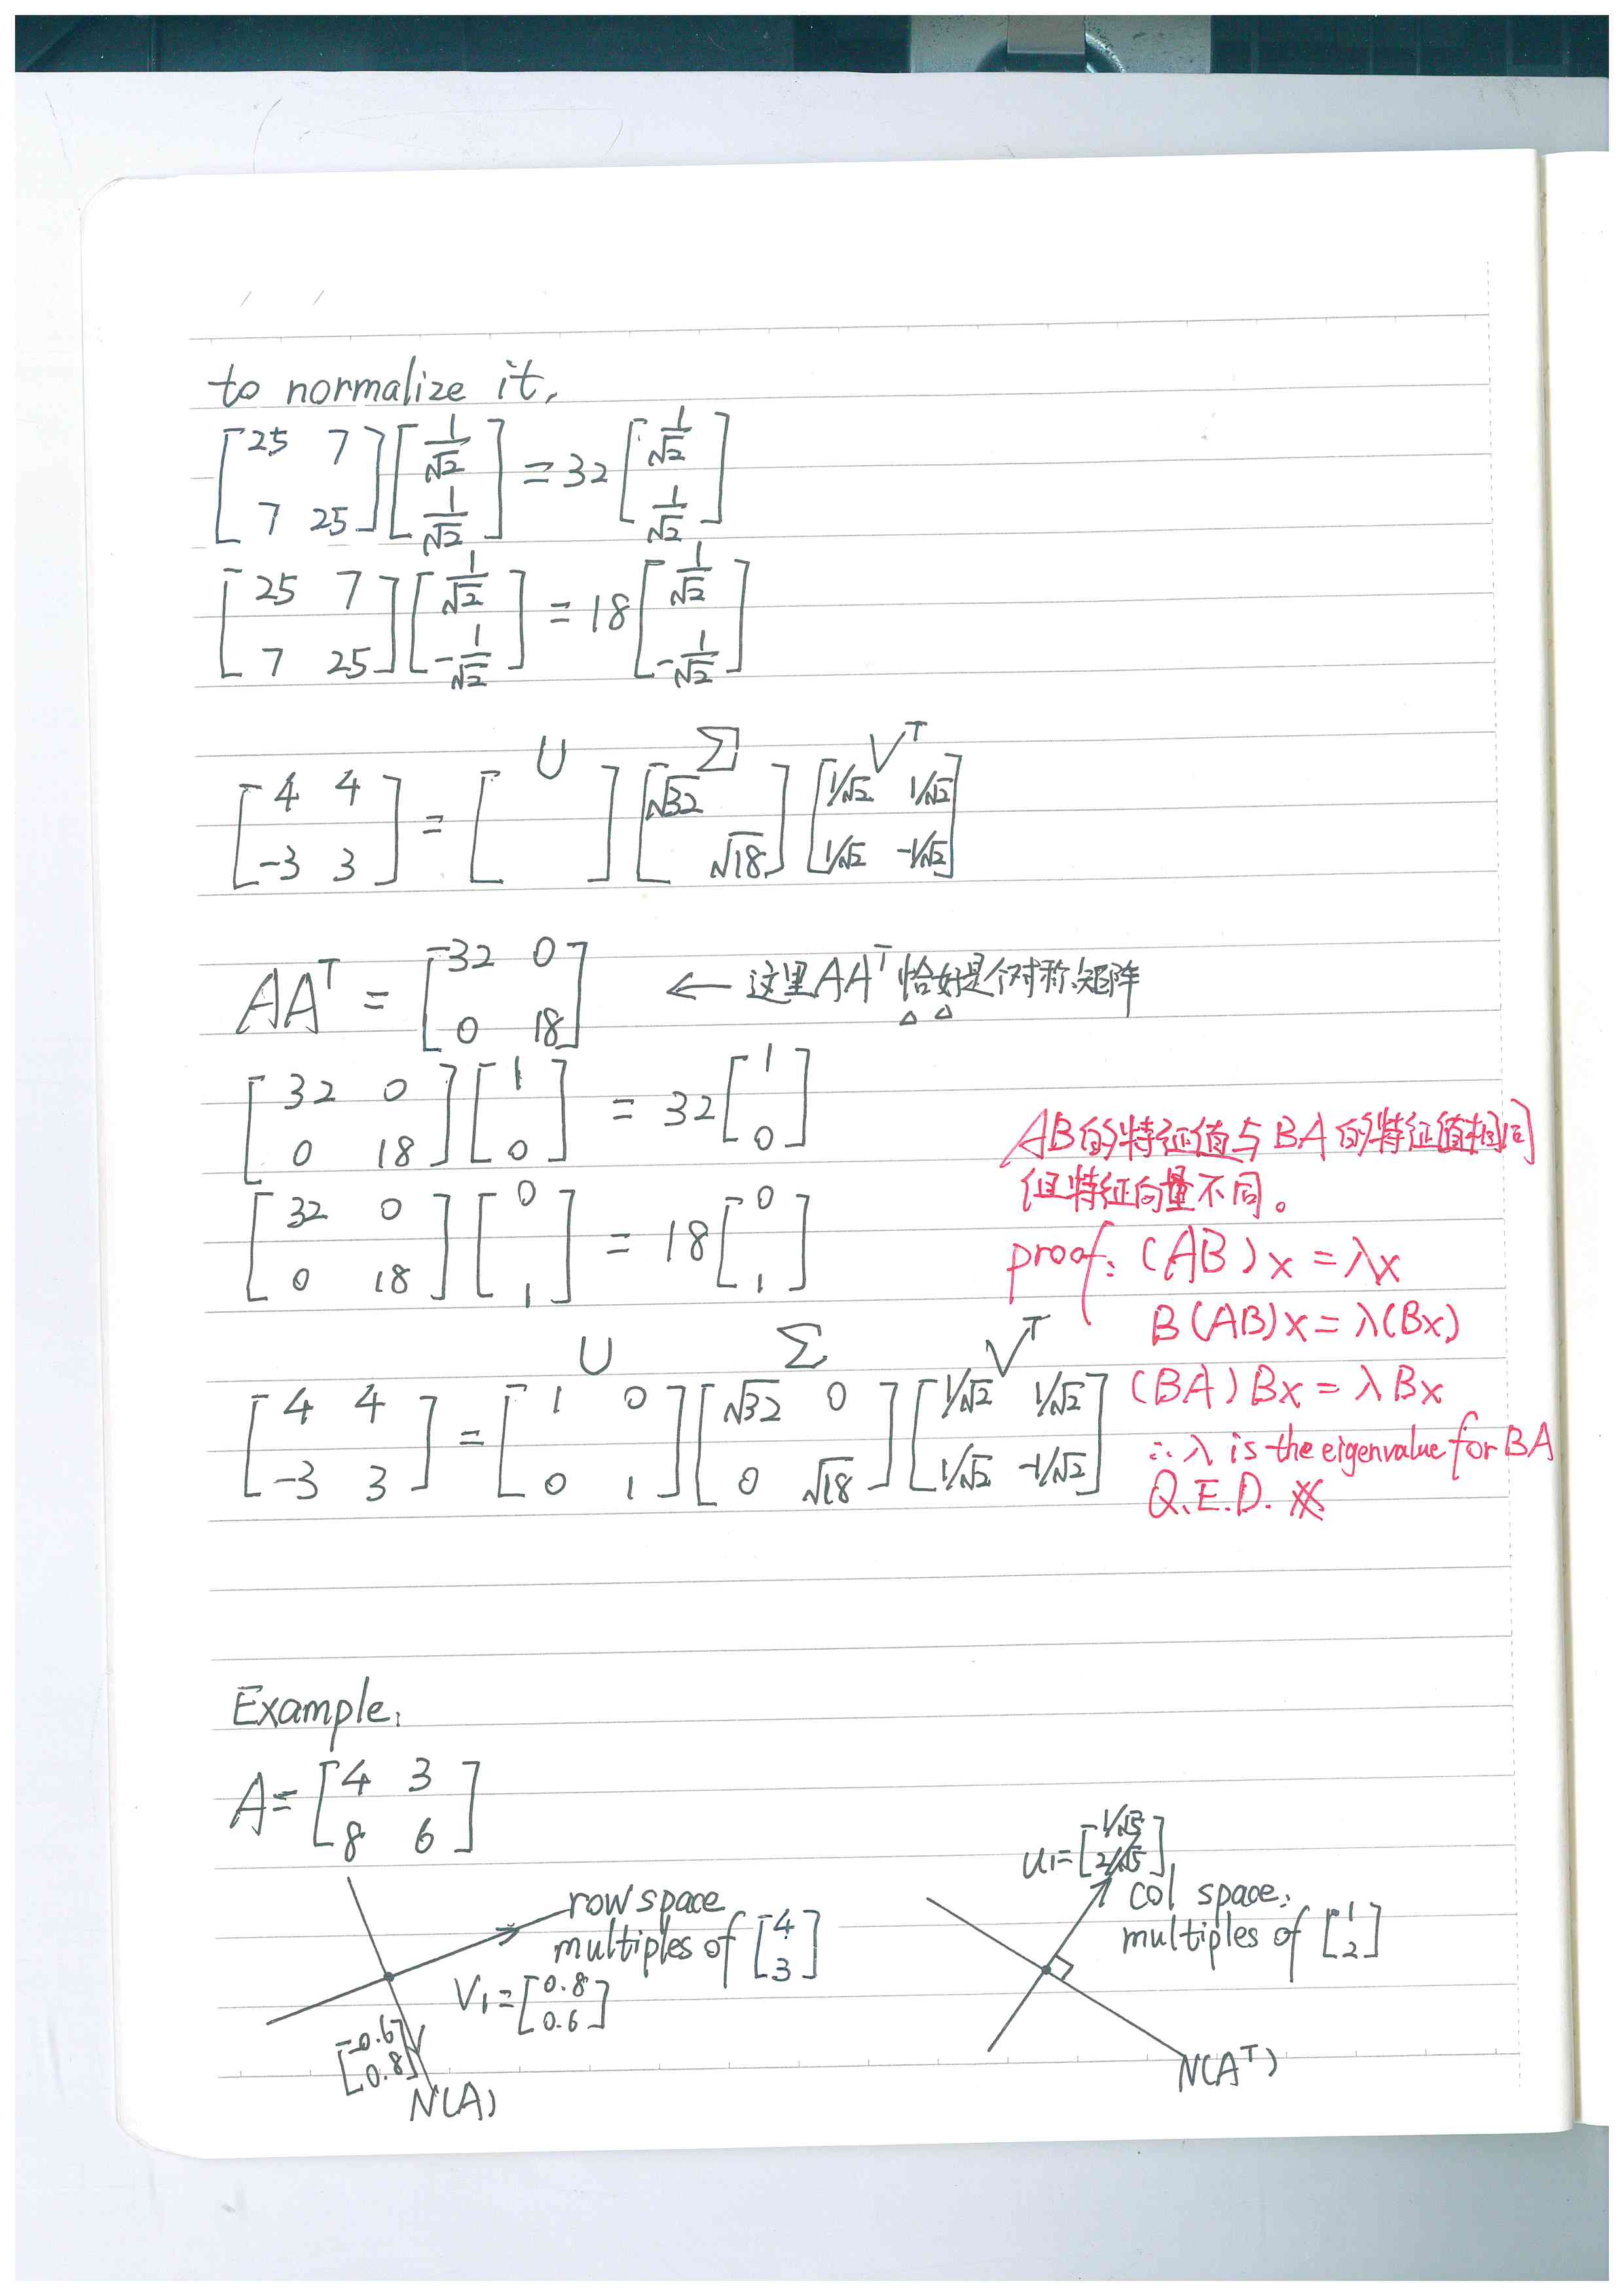 to normalize it,
[25 7; 7 25] [1/√2; 1/√2] = 32 [1/√2; 1/√2]
[25 7; 7 25] [1/√2; -1/√2] = 18 [1/√2; -1/√2]
U Σ V^T
[4 4; -3 3] = [ ] [√32 ; √18] [1/√2 1/√2; 1/√2 -1/√2]
AA^T = [32 0; 0 18] ← 这里AA^T恰好是个对称矩阵
[32 0; 0 18] [1; 0] = 32 [1; 0]
[32 0; 0 18] [0; 1] = 18 [0; 1]
U Σ V^T
[4 4; -3 3] = [1 0; 0 1] [√32 0; 0 √18] [1/√2 1/√2; 1/√2 -1/√2]
AB的特征值与BA的特征值相同
但特征向量不同。
proof: (AB)x = λx
B(AB)x = λ(Bx)
(BA)Bx = λBx
∴ λ is the eigenvalue for BA
Q.E.D. ※
Example.
A = [4 3; 8 6]
row space
multiples of [4; 3]
V1 = [0.8; 0.6]
[0.6; 0.8]
N(A)
u1 = [1/√5; 2/√5]
col space:
multiples of [1; 2]
N(A^T)